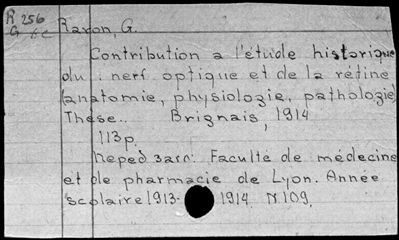 R 256
G
Raron, G.
Contribution a l'étude historique
du nerf optique et de la retine
(anatomie, physiologie, pathologie)
Thèse.. Brignais, 1914
113p.
Перед загл: Faculté de médecine
et de pharmacie de Lyon. Année
scolaire 1913- 1914 N 109.